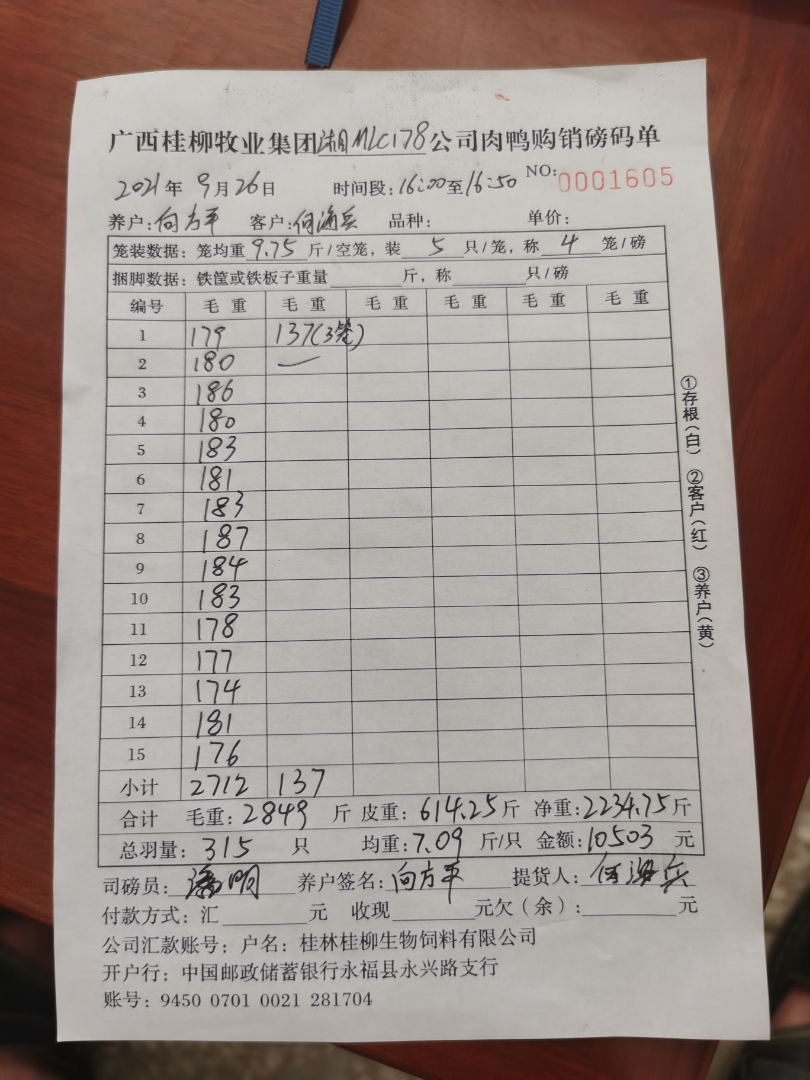 广西桂柳牧业集团湘MLC178公司肉鸭购销磅码单
2021年9月26日 时间段:16:00至16:50 NO:0001605
养户:向方平 客户:何海兵 品种: 单价:
笼装数据:笼均重9.75斤/空笼,装5只/笼,称4笼/磅
捆脚数据:铁筐或铁板子重量 斤,称 只/磅
编号 毛重 毛重 毛重 毛重 毛重 毛重
1 179 137(3笼)
2 180 —
3 186
4 180
5 183
6 181
7 183
8 187
9 184
10 183
11 178
12 177
13 174
14 181
15 176
小计 2712 137
合计 毛重:2849斤 皮重:614.25斤 净重:2234.75斤
总羽量:315只 均重:7.09斤/只 金额:10503元
司磅员:潘明 养户签名:向方平 提货人:何海兵
付款方式:汇 元 收现 元欠(余): 元
公司汇款账号:户名:桂林桂柳生物饲料有限公司
开户行:中国邮政储蓄银行永福县永兴路支行
账号:9450 0701 0021 281704
①存根(白) ②客户(红) ③养户(黄)